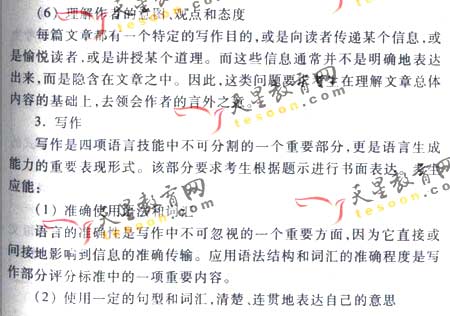 (6) 理解作者的意图、观点和态度
每篇文章都有一个特定的写作目的,或是向读者传递某个信息,或
是愉悦读者,或是讲授某个道理。而这些信息通常并不是明确地表达
出来,而是隐含在文章之中。因此,这类问题要求考生在理解文章总体
内容的基础上,去领会作者的言外之意。
3. 写作
写作是四项语言技能中不可分割的一个重要部分,更是语言生成
能力的重要表现形式。该部分要求考生根据题示进行书面表达。考生
应能:
(1) 准确使用语法和词汇
语言的准确性是写作中不可忽视的一个重要方面,因为它直接或
间接地影响到信息的准确传输。应用语法结构和词汇的准确程度是写
作部分评分标准中的一项重要内容。
(2) 使用一定的句型和词汇,清楚、连贯地表达自己的意思
天星教育网
tesoon.com
天星教育网
tesoon.com
天星教育网
tesoon.com